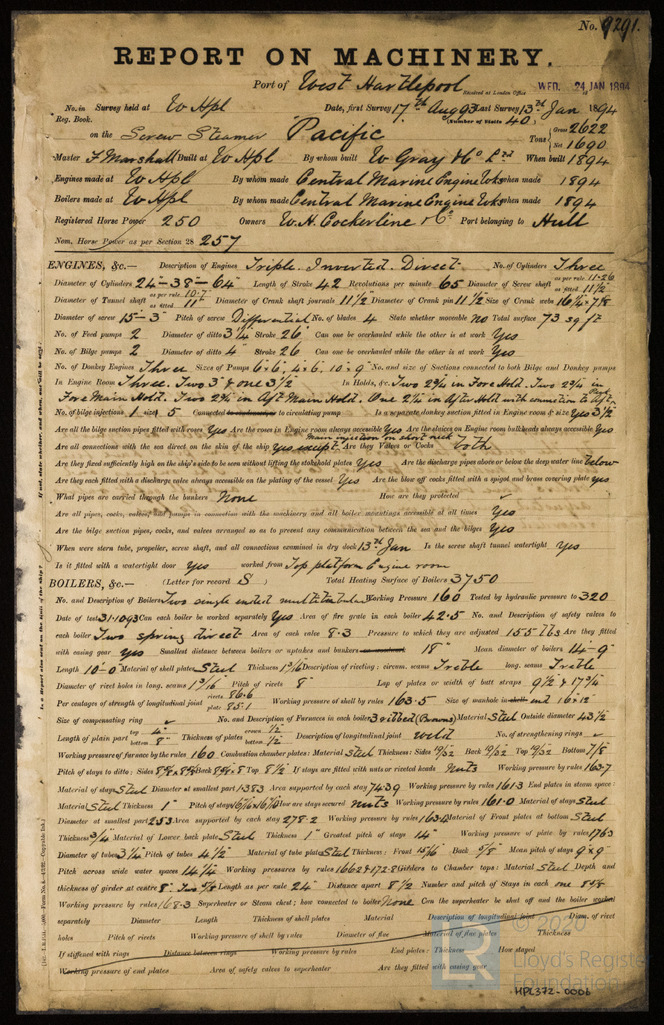 No. 9291.
REPORT ON MACHINERY.
Port of West Hartlepool
Received at London Office WED. 24 JAN 1894
No. in Survey held at W Hpl Date, first Survey 17th Aug 93 Last Survey 13th Jan 1894
Reg. Book. (Number of Visits 40)
on the Screw Steamer Pacific Tons Gross 2622 Net 1690
Master F Marshall Built at W Hpl By whom built W Gray & Co Ltd When built 1894
Engines made at W Hpl By whom made Central Marine Engine Wks when made 1894
Boilers made at W Hpl By whom made Central Marine Engine Wks when made 1894
Registered Horse Power 250 Owners W. H. Cockerline & Co Port belonging to Hull
Nom. Horse Power as per Section 28 257
ENGINES, &c.— Description of Engines Triple. Inverted. Direct No. of Cylinders Three
Diameter of Cylinders 24-38-64 Length of Stroke 42 Revolutions per minute 65 Diameter of Screw shaft as per rule 11.26 as fitted 11 1/2
Diameter of Tunnel shaft as per rule 10.7 as fitted 11" Diameter of Crank shaft journals 11 1/2 Diameter of Crank pin 11 1/2 Size of Crank webs
Diameter of screw 15-3 Pitch of screw Differential No. of blades 4 State whether moveable No Total surface 73 sq ft
No. of Feed pumps 2 Diameter of ditto 3 1/4 Stroke 26" Can one be overhauled while the other is at work Yes
No. of Bilge pumps 2 Diameter of ditto 4" Stroke 26" Can one be overhauled while the other is at work Yes
No. of Donkey Engines Three Sizes of Pumps 6x6, 4x6, 10x9 No. and size of Suctions connected to both Bilge and Donkey pumps
In Engine Room Three. Two 3" & one 3 1/2 In Holds, &c. Two 2 3/4 in Fore Hold. Two 2 3/4 in
Fore Main Hold. Two 2 3/4 in Aft Main Hold. One 2 3/4 in After Hold with connection to Aft
No. of bilge injections 1 sizes 5 Connected to circulating pump Is a separate donkey suction fitted in Engine room & size Yes 3 1/2
Are all the bilge suction pipes fitted with roses Yes Are the roses in Engine room always accessible Yes Are the sluices on Engine room bulkheads always accessible Yes
Are all connections with the sea direct on the skin of the ship Yes except main injection on short neck Are they Valves or Cocks both
Are they fixed sufficiently high on the ship's side to be seen without lifting the stokehold plates Yes Are the discharge pipes above or below the deep water line below
Are they each fitted with a discharge valve always accessible on the plating of the vessel Yes Are the blow off cocks fitted with a spigot and brass covering plate yes
What pipes are carried through the bunkers None How are they protected
Are all pipes, cocks, valves, and pumps in connection with the machinery and all boiler mountings accessible at all times Yes
Are the bilge suction pipes, cocks, and valves arranged so as to prevent any communication between the sea and the bilges Yes
When were stern tube, propeller, screw shaft, and all connections examined in dry dock 13th Jan Is the screw shaft tunnel watertight Yes
Is it fitted with a watertight door Yes worked from Top platform Engine room
BOILERS, &c.— (Letter for record S) Total Heating Surface of Boilers 3750
No. and Description of Boilers Two single ended multitubular Working Pressure 160 Tested by hydraulic pressure to 320
Date of test 31.10.93 Can each boiler be worked separately Yes Area of fire grate in each boiler 42.5 No. and Description of safety valves to
each boiler Two spring direct Area of each valve 8.3 Pressure to which they are adjusted 155 lbs Are they fitted
with easing gear yes Smallest distance between boilers or uptakes and bunkers 18" Mean diameter of boilers 14-9
Length 10-0 Material of shell plates Steel Thickness 1 3/16 Description of riveting: circum. seams Treble long. seams Treble
Diameter of rivet holes in long. seams 1 3/16 Pitch of rivets 8" Lap of plates or width of butt straps 9 1/2 & 17 3/4
Per centages of strength of longitudinal joint rivets 86.6 plate 85.1 Working pressure of shell by rules 163.5 Size of manhole in 16x12
Size of compensating ring No. and Description of Furnaces in each boiler 3 ribbed (Browns) Material Steel Outside diameter 43 1/2
Length of plain part top 4" bottom 8" Thickness of plates crown 1/2 bottom 1/2 Description of longitudinal joint weld No. of strengthening rings
Working pressure of furnace by the rules 160 Combustion chamber plates: Material Steel Thickness: Sides 19/32 Back 19/32 Top 19/32 Bottom 7/8
Pitch of stays to ditto: Sides Back Top 8 1/2 If stays are fitted with nuts or riveted heads Nuts Working pressure by rules 163.7
Material of stays Steel Diameter at smallest part 1.383 Area supported by each stay 74.39 Working pressure by rules 161.3 End plates in steam space:
Material Steel Thickness 1" Pitch of stays How are stays secured nuts Working pressure by rules 161.0 Material of stays Steel
Diameter at smallest part 2.53 Area supported by each stay 278.2 Working pressure by rules 163.4 Material of Front plates at bottom Steel
Thickness 3/4 Material of Lower back plate Steel Thickness 1" Greatest pitch of stays 14" Working pressure of plate by rules 176.3
Diameter of tubes 3 1/4 Pitch of tubes 4 1/2 Material of tube plates Steel Thickness: Front 15/16 Back Mean pitch of stays 9x9
Pitch across wide water spaces 14 1/4 Working pressures by rules 166.2 & 172.8 Girders to Chamber tops: Material Steel Depth and
thickness of girder at centre 8" Two 5/8 Length as per rule 24" Distance apart 8 1/2 Number and pitch of Stays in each one
Working pressure by rules 168.3 Superheater or Steam chest; how connected to boiler None Can the superheater be shut off and the boiler worked
separately Diameter Length Thickness of shell plates Material Description of longitudinal joint Diam. of rivet
holes Pitch of rivets Working pressure of shell by rules Diameter of flue Material of flue plates Thickness
If stiffened with rings Distance between rings Working pressure by rules End plates: Thickness How stayed
Working pressure of end plates Area of safety valves to superheater Are they fitted with easing gear
© 2020
Lloyd's Register
Foundation
HPL372-0006